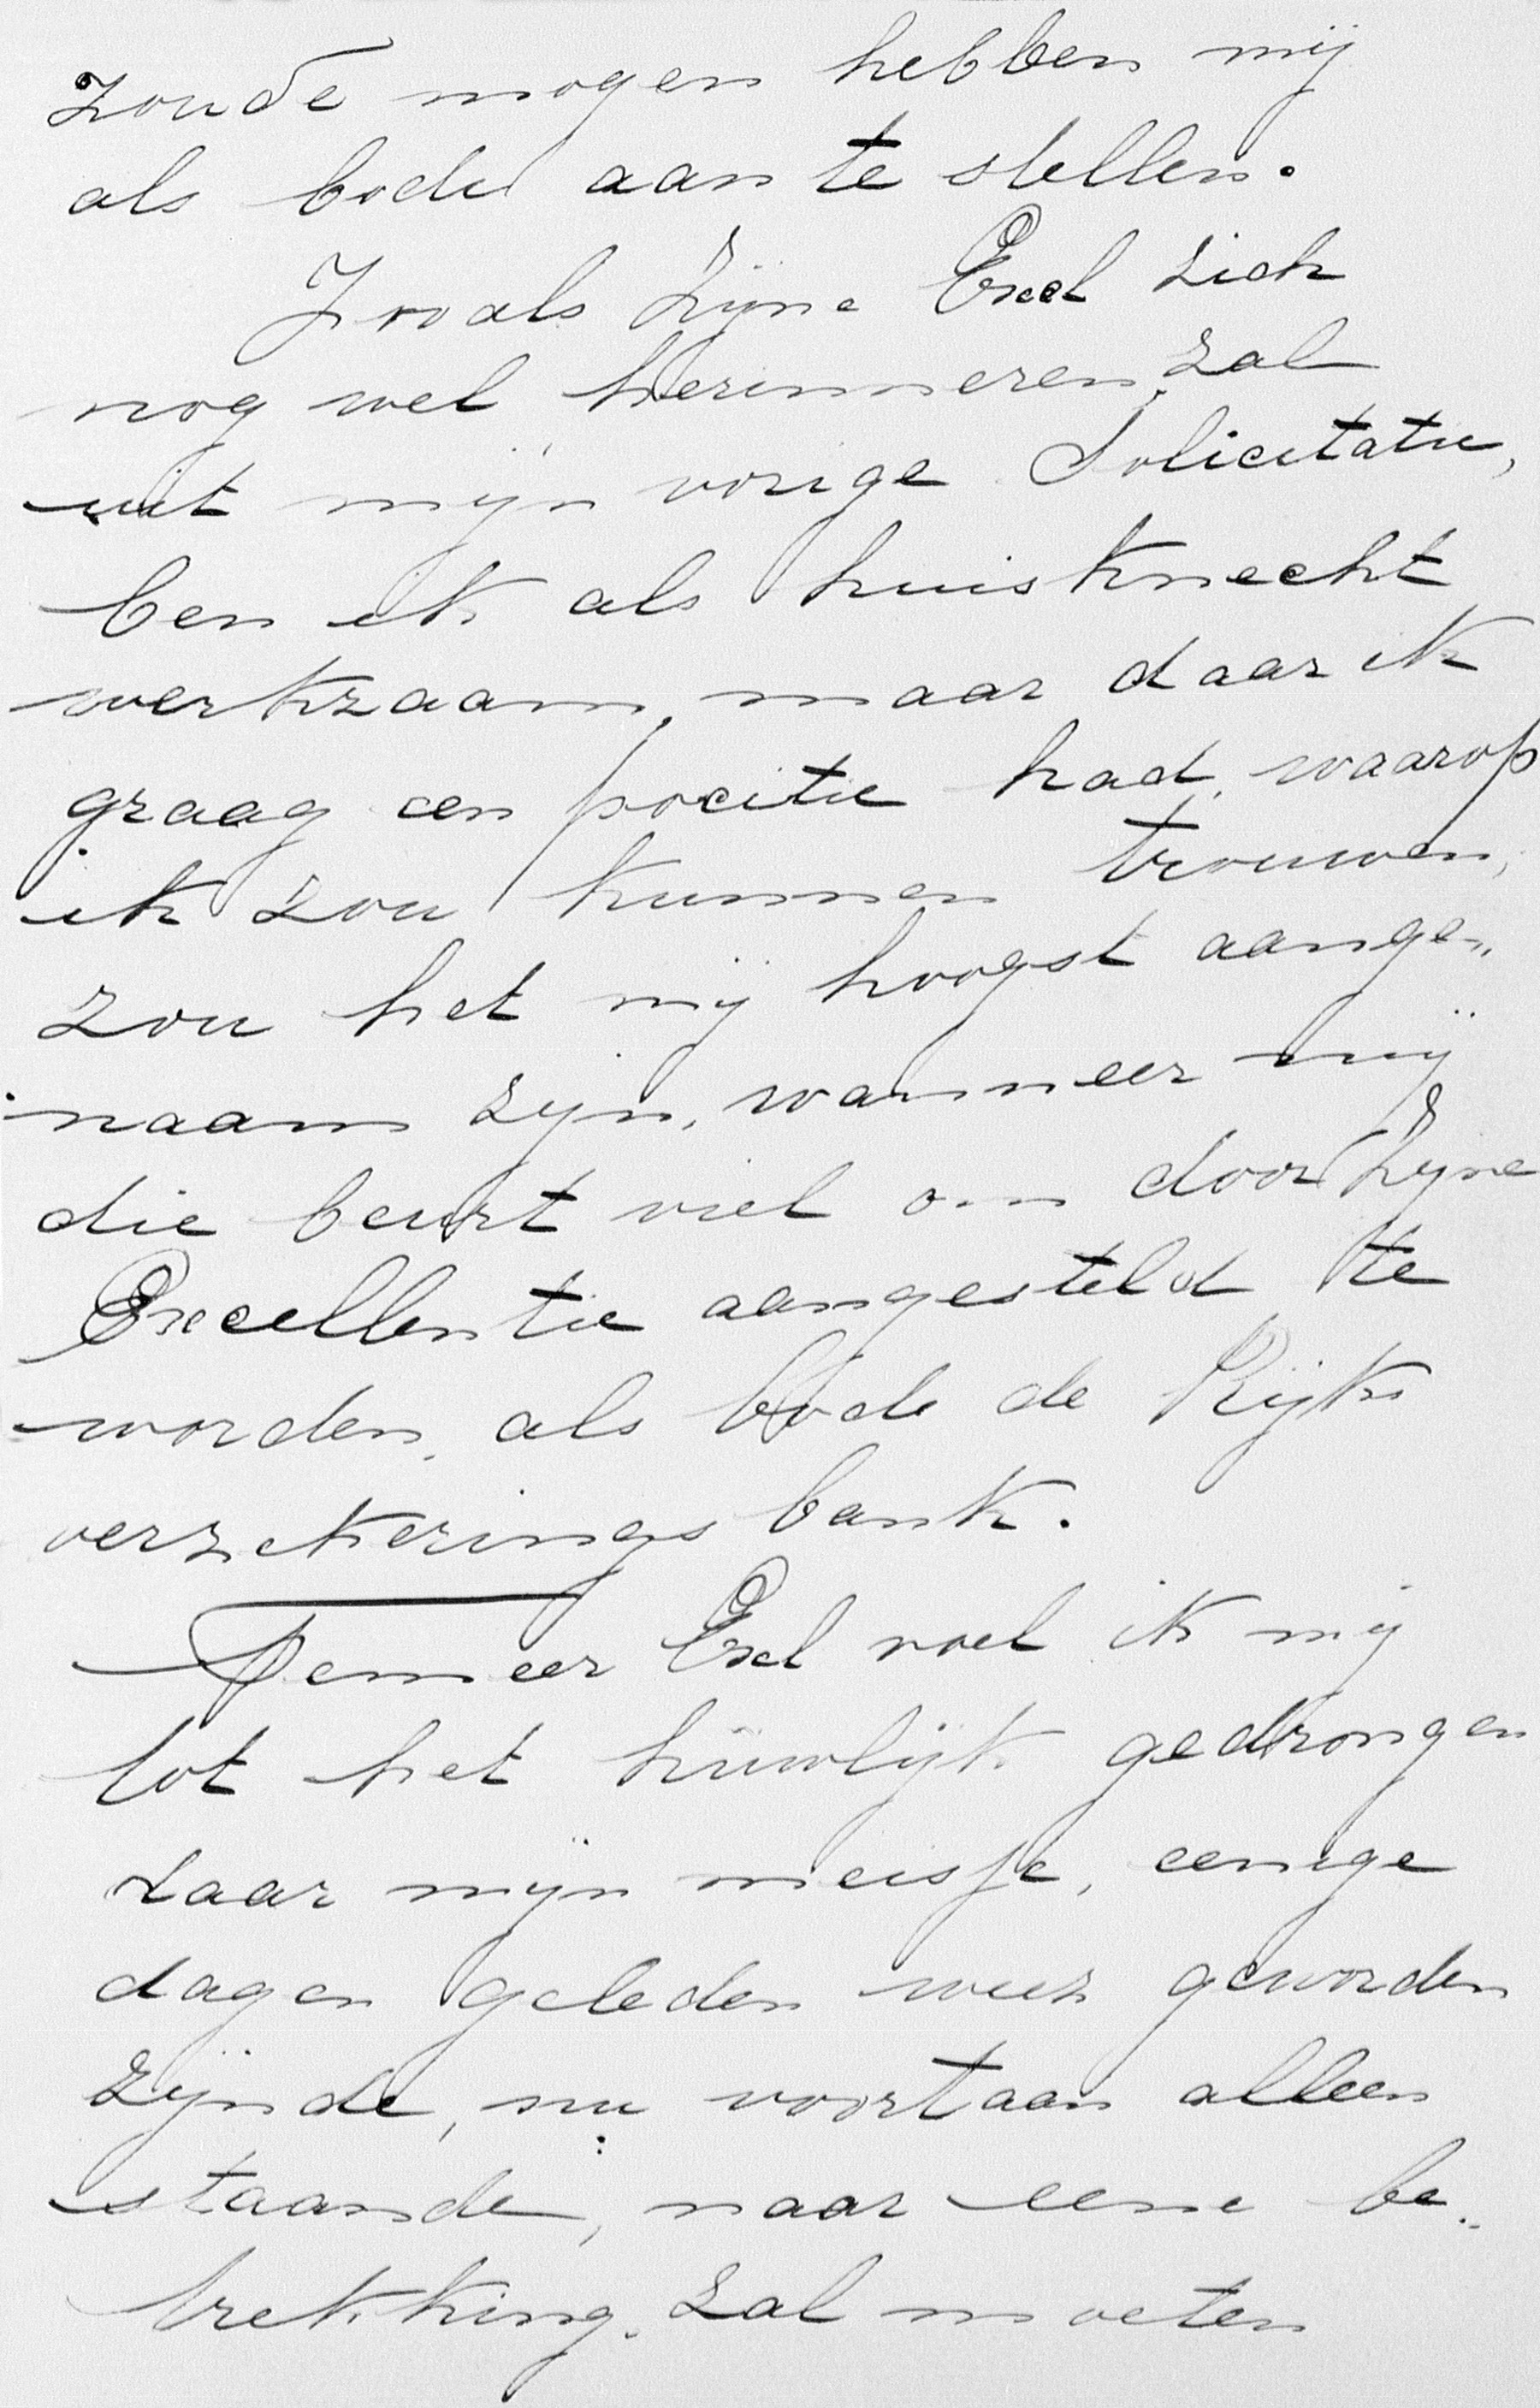 zoude mogen hebben mij
als bode aan te stellen.
Zooals Zijne Excel zich
nog wel herinneren zal
uit mijn vorige Solicitatie,
ben ik als huisknecht
werkzaam, maar daar ik
graag een pocitie had, waarop
ik zou kunnen trouwen,
zou het mij hoogst aange„
naam zijn, wanneer mij
die beurt viel om door Zijne
Excellentie aangesteld te
worden, als bode de Rijks
verzekerings bank.
Temeer Excl voel ik mij
tot het huwlijk gedrongen
daar mijn meisje, eenige
dagen geleden wees geworden
zijnde, nu voortaan alleen
staande, naar eene be„
trekking zal moeten